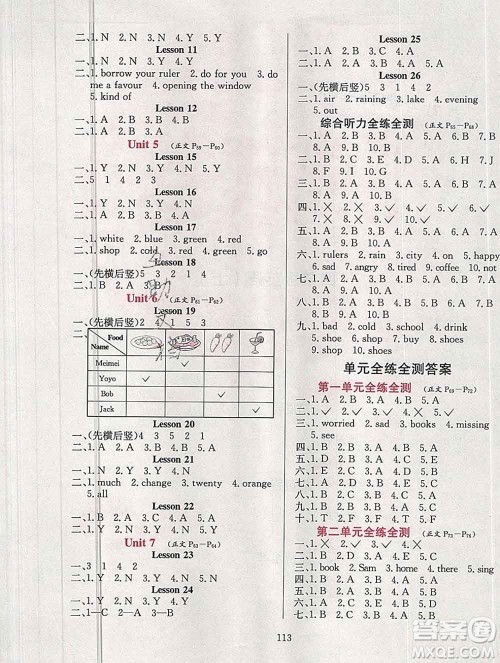 二、1. N 2. N 3. Y 4. N 5. N
Lesson 11
一、1. Y 2. N 3. N 4. Y 5. Y
二、1. borrow your ruler 2. do for you 3. do
me a favour 4. opening the window
5. kind of
Lesson 12
一、1. A 2. B 3. B 4. A 5. A
Unit 5 (正文 P59—P60)
Lesson 15
一、1. Y 2. Y 3. N 4. N 5. Y
二、5 1 4 2 3
Lesson 16
一、1. N 2. N 3. Y 4. Y 5. N
Lesson 17
一、1. white 2. blue 3. green 4. red
二、1. shop 2. cold 3. red 4. green 5. go
Lesson 18
一、(先横后竖)5 3 2 1 4
二、1. B 2. A 3. B 4. A 5. A
Unit 6 (正文 P61—P62)
Lesson 19
一、(先横后竖)2 4 1 5 3
二、
Food
Name
Meimei
Yoyo
Bob
Jack
Lesson 20
一、(先横后竖)4 3 5 1 2
二、1. B 2. A 3. B 4. B 5. A
Lesson 21
一、1. much 2. change 3. twenty 4. orange
5. all
Lesson 22
一、1. B 2. A 3. A 4. A 5. A
Unit 7 (正文 P63—P64)
Lesson 23
一、3 1 4 2
二、1. N 2. Y 3. N 4. Y 5. Y
Lesson 24
一、1—C 2—A 3—B
113
Lesson 25
一、1. A 2. B 3. B 4. A 5. A
Lesson 26
一、(先横后竖)5 3 2 4 1
二、1. air 2. raining 3. lake 4. evening
5. out
综合听力全练全测 (正文 P65—P68)
一、1. A 2. B 3. A 4. B 5. B
二、1. B 2. B 3. A 4. B 5. A
三、1. A 2. H 3. B 4. C 5. E 6. J 7. D
8. F 9. I 10. G
四、1. ✕ 2. ✕ 3. ✓ 4. ✓ 5. ✓
五、1. A 2. A 3. B 4. A 5. A 6. B 7. B
8. A 9. B 10. A
六、1. rulers 2. come 3. city 4. on 5. happy
6. sad 7. angry 8. tired 9. coffee 10. buy
七、1. A 2. B 3. B 4. A 5. A
八、1. A 2. B 3. A 4. A 5. B
九、1. bad 2. school 3. said 4. shoes
5. cold
单元全练全测答案
第一单元全练全测 (正文 P69—P72)
一、1. B 2. B 3. A 4. B 5. A
二、1. ✓ 2. ✕ 3. ✓ 4. ✓ 5. ✕
三、1. worried 2. sad 3. man 4. missing
5. see
四、1. B 2. B 3. A 4. A 5. A
五、1. D 2. A 3. C 4. B 5. E
六、1. D 2. E 3. C 4. B 5. A
七、1. C 2. D 3. A 4. E 5. B
八、1. B 2. B 3. A 4. A 5. A
九、1. B 2. A 3. B 4. A 5. B
十、1. T 2. F 3. T 4. F 5. F
第二单元全练全测 (正文 P73—P76)
一、1. ✕ 2. ✓ 3. ✓ 4. ✓ 5. ✕
二、1. B 2. A 3. B 4. A 5. A
三、1. book 2. Sam 3. home 4. here 5. sing
四、1. B 2. B 3. A 4. A 5. A
五、1. D 2. C 3. A 4. B 5. E
六、1. C 2. D 3. A 4. E 5. B
七、1. A 2. A 3. B 4. A 5. B
MXQE.COM